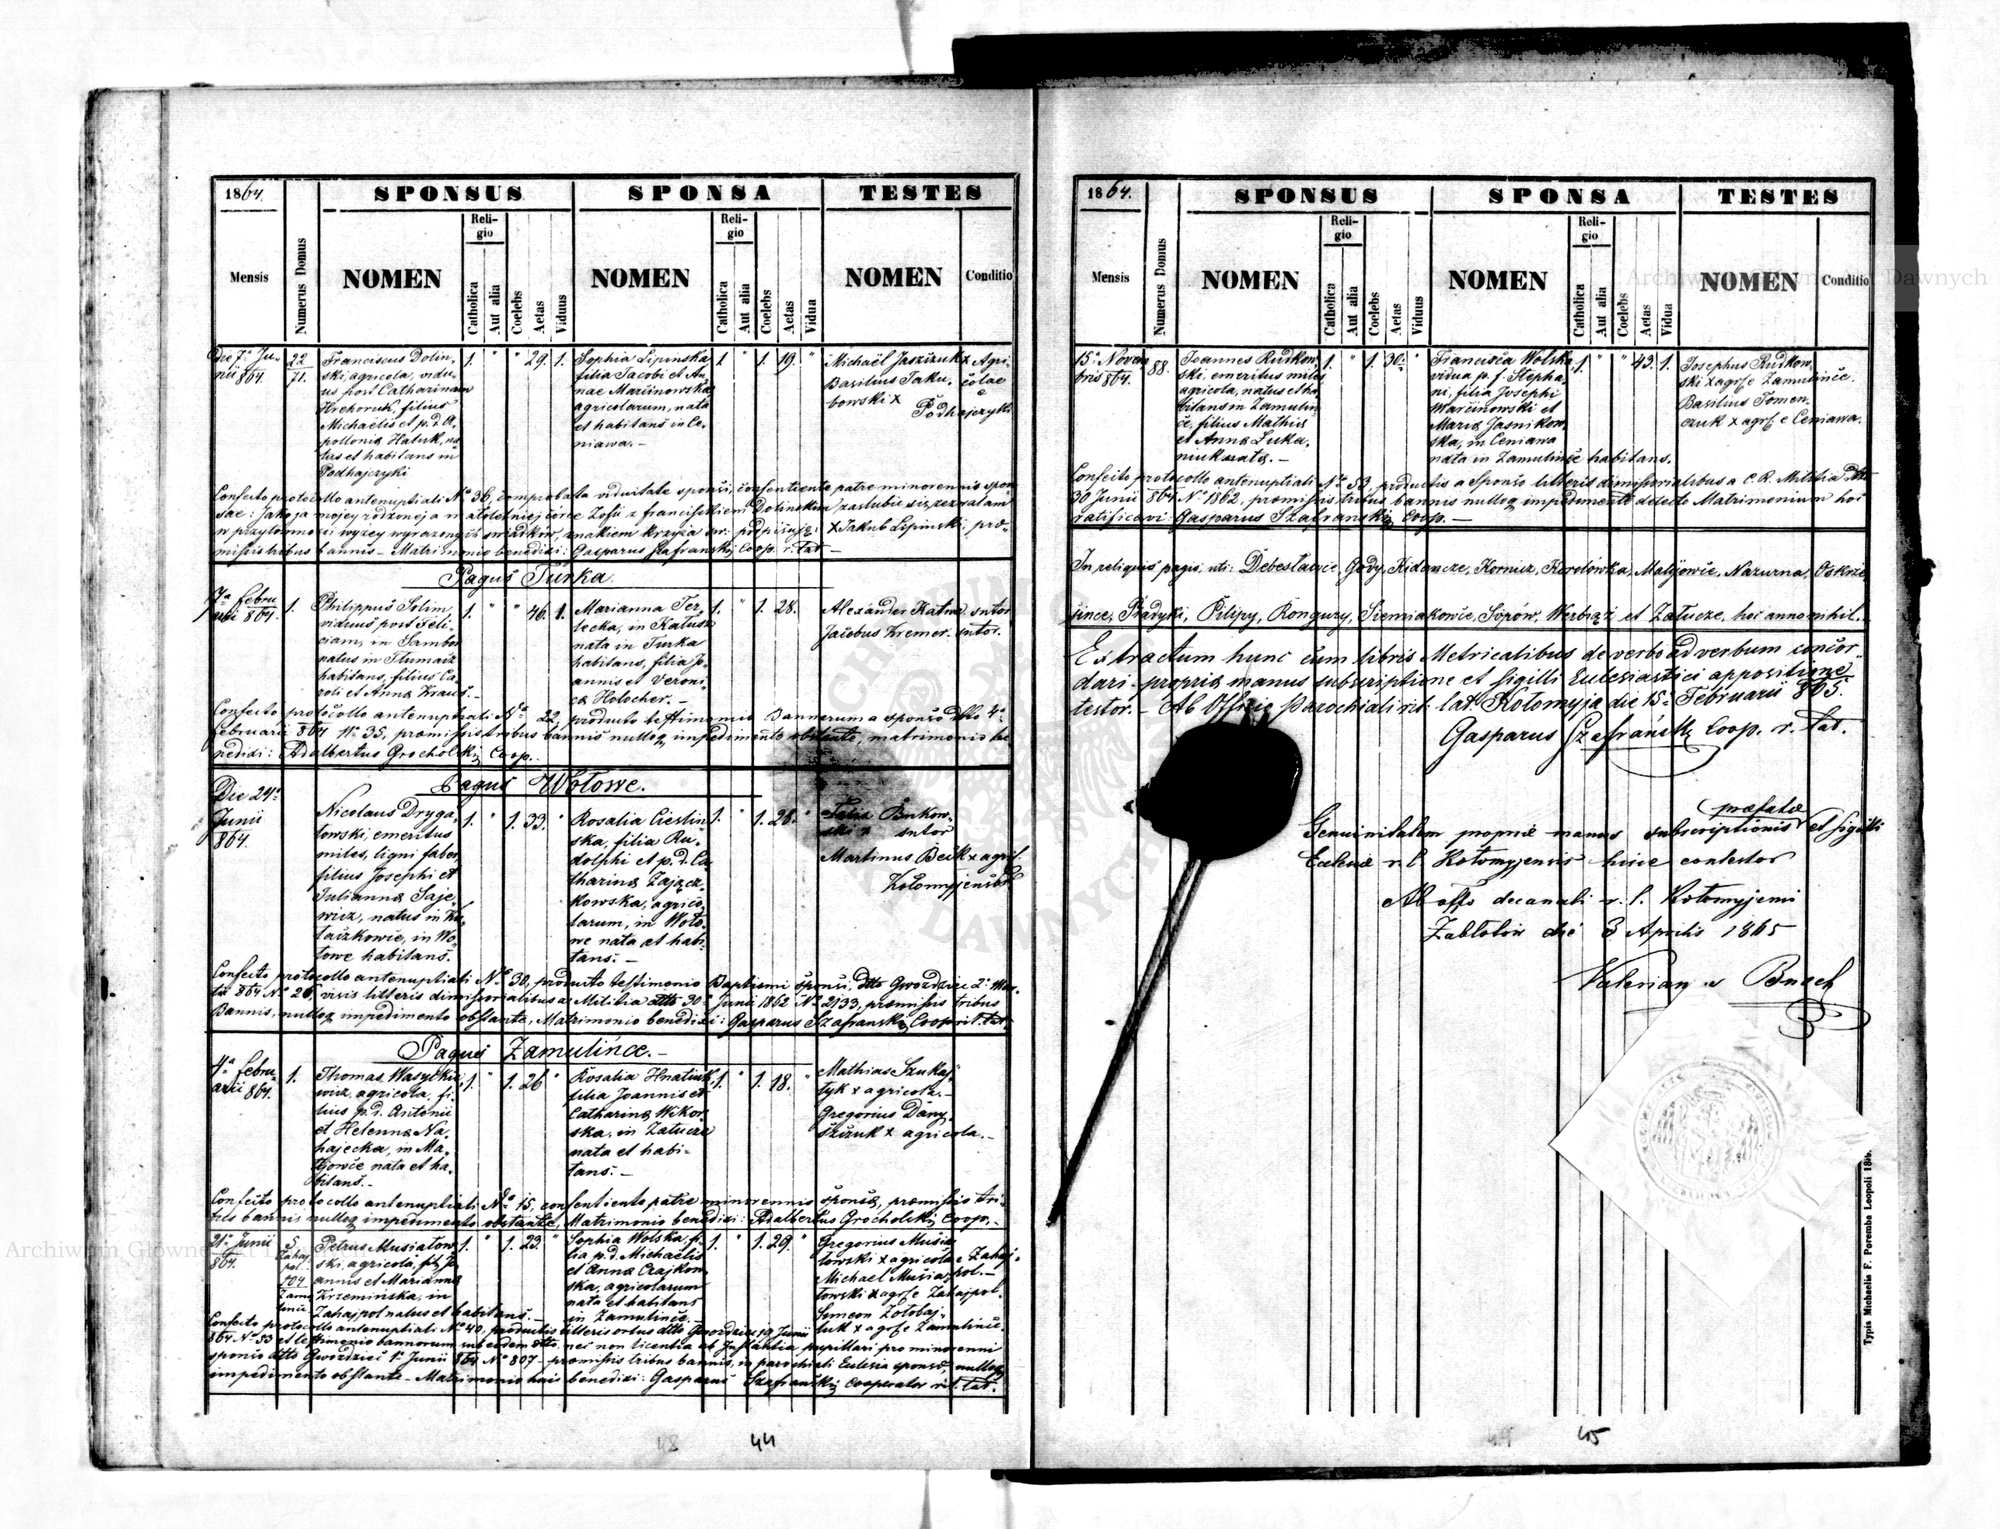 1864.
SPONSUS
SPONSA
TESTES
Mensis
Numerus Domus
NOMEN
Reli-
gio
Catholica
Aut alia
Coelebs
Aetas
Viduus
NOMEN
Reli-
gio
Catholica
Aut alia
Coelebs
Aetas
Vidua
NOMEN
Conditio
Die 7a Ju-
nii 864.
22
71.
Franciscus Dolin-
ski, agricola, vidu-
us post Catharinam
Hrehoruk, filius
Michaelis et p. d. A-
pollonia Haluk, na-
tus et habitans in
Podhajczyki
1. " " 29. 1.
Sophia Lipinska
filia Jacobi et An-
nae Marcinowska
agricolarum, nata
et habitans in Ce-
niawa. -
1 " 1. 19. "
Michaël Jaszczuk x Agri-
Basilius Jaku- colae
bowski x e
Podhajczyki
Confecto protocollo antenuptiali No 36, comprobata viduitate sponsi, consentiente patre minorennis spon-
sae: Jako ja mojey rodzonej a małoletniej córce Zofii z Franciszkiem Dolinskim zaslubić się zezwalam
w przytomności wyzey wyrazonych swiadków, znakiem krzyża sw: podpisuję: x Jakub Lipinski, prae-
missis tribus bannis - Matrimonio benedixi: Gasparus Szafranski Coop. r. lat -
Pagus Turka.
7a Febru-
arii 864.
1.
Philippus Solim
viduus post Feli-
ciam, in Sambor
natus in Tłumacz
habitans, filius Ca-
roli et Anna Kraus. -
1. " " 46. 1.
Marianna Ter-
lecka, in Kałusz
nata in Turka
habitans, filia Jo-
annis et Veroni-
ca Holocher. -
1. " 1. 28.
Alexander Katna sutor
Jacobus Kremer. sutor.
Confecto protocollo antenuptiali No 22, producto testimonio Bannorum a sponso ddto 4a
Februarii 864 No 35, praemissis tribus bannis nulloq impedimento obstante, matrimonio be-
nedixi: Adalbertus Grocholski Coop.
Pagus Wołowe.
Die 24a
Junii
864.
Nicolaus Dryga-
łowski, emeritus
miles, ligni faber
filius Josephi et
Julianna Saje-
wicz, natus in Ku-
łaczkowce, in Wo-
łowe habitans.
1. " 1. 33. "
Rosalia Cieslin-
ska, filia Ru-
dolphi et p. d. Ca-
tharina Zającz-
kowska, agrico-
larum, in Woło-
we nata et habi-
tans. -
1. " 1. 26. "
Bukow-
ski x sutor
Martinus Beik x agric.
Kołomyjensis
Confecto protocollo antenuptiali No 30, producto testimonio Baptismi sponsi, ddto Gwozdziec 2a Mar-
tii 864 No 26, visis litteris dimissorialibus a Militia ddto 30a Junii 1862 No 2133, praemissis tribus
Bannis, nulloq impedimento obstante, Matrimonio benedixi: Gasparus Szafranski Coop rit. lat.
Pagus Zamulince. -
4a Febru-
arii 864.
1.
Thomas Wasylkie-
wicz, agricola, fi-
lius p. d. Antonii
et Helenna Na-
hajecka, in Ma-
tyjowce nata et ha-
bitans. -
1. " 1. 26 "
Rosalia Hnatiuk
filia Joannis et
Catharina Wikor-
ska, in Załucze
nata et habi-
tans. -
1. " 1. 18. "
Mathias Szukaj-
tyk x agricola. -
Gregorius Dany-
szczuk x agricola. -
Confecto protocollo antenuptiali No 15, consentiente patre minorennis sponsa, praemissis tri-
bus bannis nulloq impedimento obstante, Matrimonio benedixi: Adalbertus Grocholski Coop. -
21a Junii
864.
5
Zahaj-
pol.
104
Zamu-
lince
Petrus Musiatow-
ski, agricola, fil. Jo-
annis et Marianna
Krzeminska, in
Zahajpol natus et habitans. -
1. " 1. 23. "
Sophia Wolska, fi-
lia p. d. Michaelis
et Anna Czajkow-
ska, agricolarum
nata et habitans
in Zamulince. -
1. " 1. 29. "
Gregorius Musia-
towski x agricola e Zahaj-
Michael Musia- pol. -
towski x agr. e Zahajpol.
Simeon Zołobaj-
luk x agr. e Zamulince.
Confecto protocollo antenuptiali No 40, productis litteris ortus ddto Gwozdziec 19 Junii
864 No 53 et testimonio bannorum sub eodem dtto, nec non licentia ab Instantia pupillari pro minorenni
sponso ddto Gwozdziec 1a Junii 864 No 807 - praemissis tribus bannis, in parochiali Eclesia sponsa, nulloq
impedimento obstante - Matrimonio huic benedixi: Gasparus Szafranski cooperator rit. lat.
44
1864.
SPONSUS
SPONSA
TESTES
Mensis
Numerus Domus
NOMEN
Reli-
gio
Catholica
Aut alia
Coelebs
Aetas
Viduus
NOMEN
Reli-
gio
Catholica
Aut alia
Coelebs
Aetas
Vidua
NOMEN
Conditio
15a Novem-
bris 864.
88.
Joannes Rudkow-
ski, emeritus miles
agricola, natus et ha-
bitans in Zamulin-
ce, filius Mathia
et Anna Luka-
niuk nata. -
1. " 1. 30. "
Francisca Wolska,
vidua p. f. Stepha-
ni, filia Josephi
Marcinowski et
Maria Jasnikow-
ska, in Ceniawa
nata in Zamulince habitans.
1. " " 43. 1.
Josephus Rudkow-
ski x agr. e Zamulince.
Basilius Tomen-
czuk x agr. e Ceniawa.
Confecto protocollo antenuptiali No 53, productis a Sponso litteris dimissorialibus a C. R. Militia ddto
30 Junii 864 No 1862, promissis tribus bannis nulloq impedimento detecto Matrimonium hoc
ratificavi Gasparus Szafranski Coop. -
In reliquis pagis, uti: Debesławce, Gody, Kidancze, Kornicz, Korolówka, Matyjowce, Nazurna, Oskrze-
sińce, Piadyki, Pilipy, Rongury, Siemiakowce, Sopów, Werbiąż et Załucze, hoc anno nihil.
Extractum hunc cum libris Metricalibus de verbo ad verbum concor-
dari propria manus subscriptione et sigilli Eclesiastici appositione
testor. - Ab Officio parochiali rit. lat. Kołomyja die 15a Februarii 865.
Gasparus Szafrański Coop. r. lat.
praefatae
Genuinitatem propriae manus subscriptionis et sigilli
Ecclesiae r. l. Kołomyjensis hisce contestor
Ab offo decanali r. l. Kołomyjensi
Zabłotów die 3 Aprilis 1865
Valerian v Busch
Typis Michaelis F. Poremba Leopoli 18
45